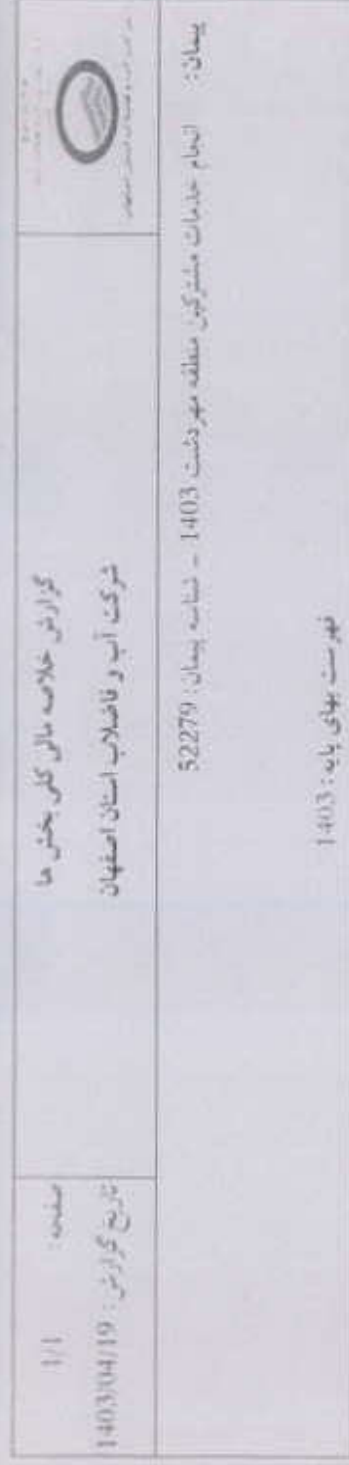 گزارش خلاصه مالی کلی بخش ها
شرکت آب و فاضلاب استان اصفهان
صفحه : 1/1
تاریخ گزارش : 1403/04/19
پیمان: انجام خدمات مشترکین منطقه مهردشت 1403 - شناسه پیمان: 52279
فهرست بهای پایه : 1403